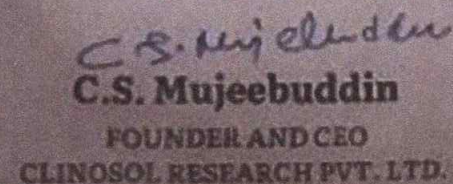 C.S. Mujeebuddin
C.S. Mujeebuddin
FOUNDER AND CEO
CLINOSOL RESEARCH PVT. LTD.